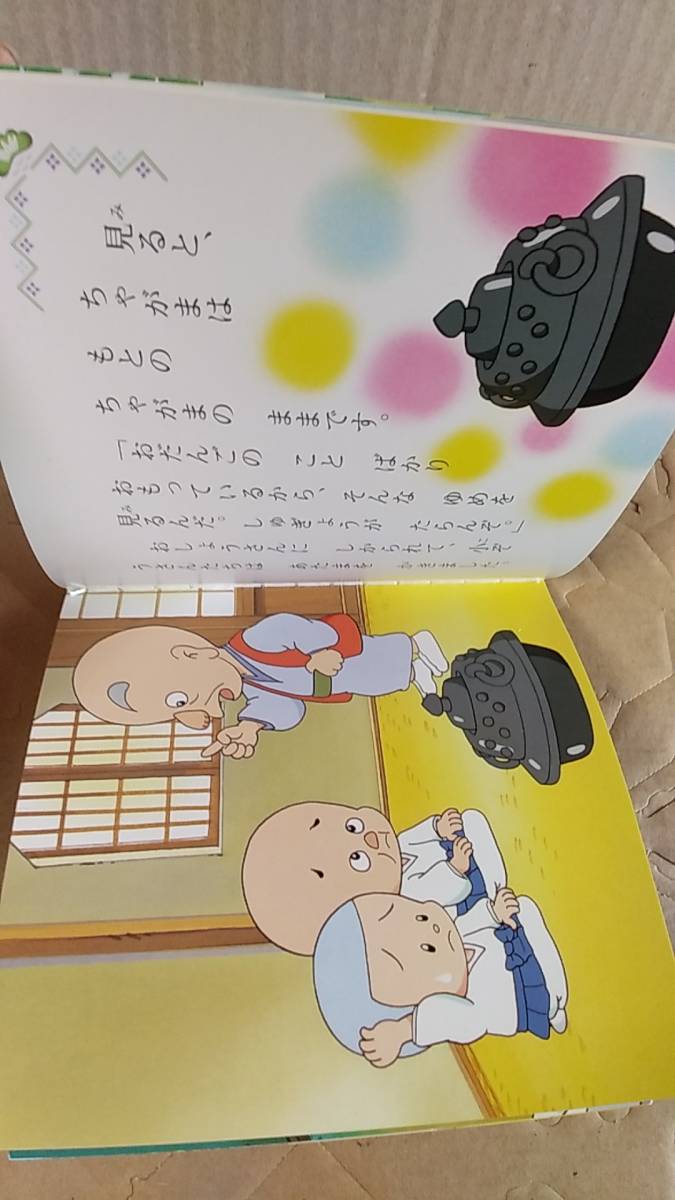 見ると、
ちゃがまは
もとの
ちゃがまの ままです。
「おだんごの こと ばかり
おもっているから、そんな ゆめを
見るんだ。しゅぎょうが たらんぞ。」
おしょうさんに しかられて、小ぞ
うさんたちは あたまを かきました。